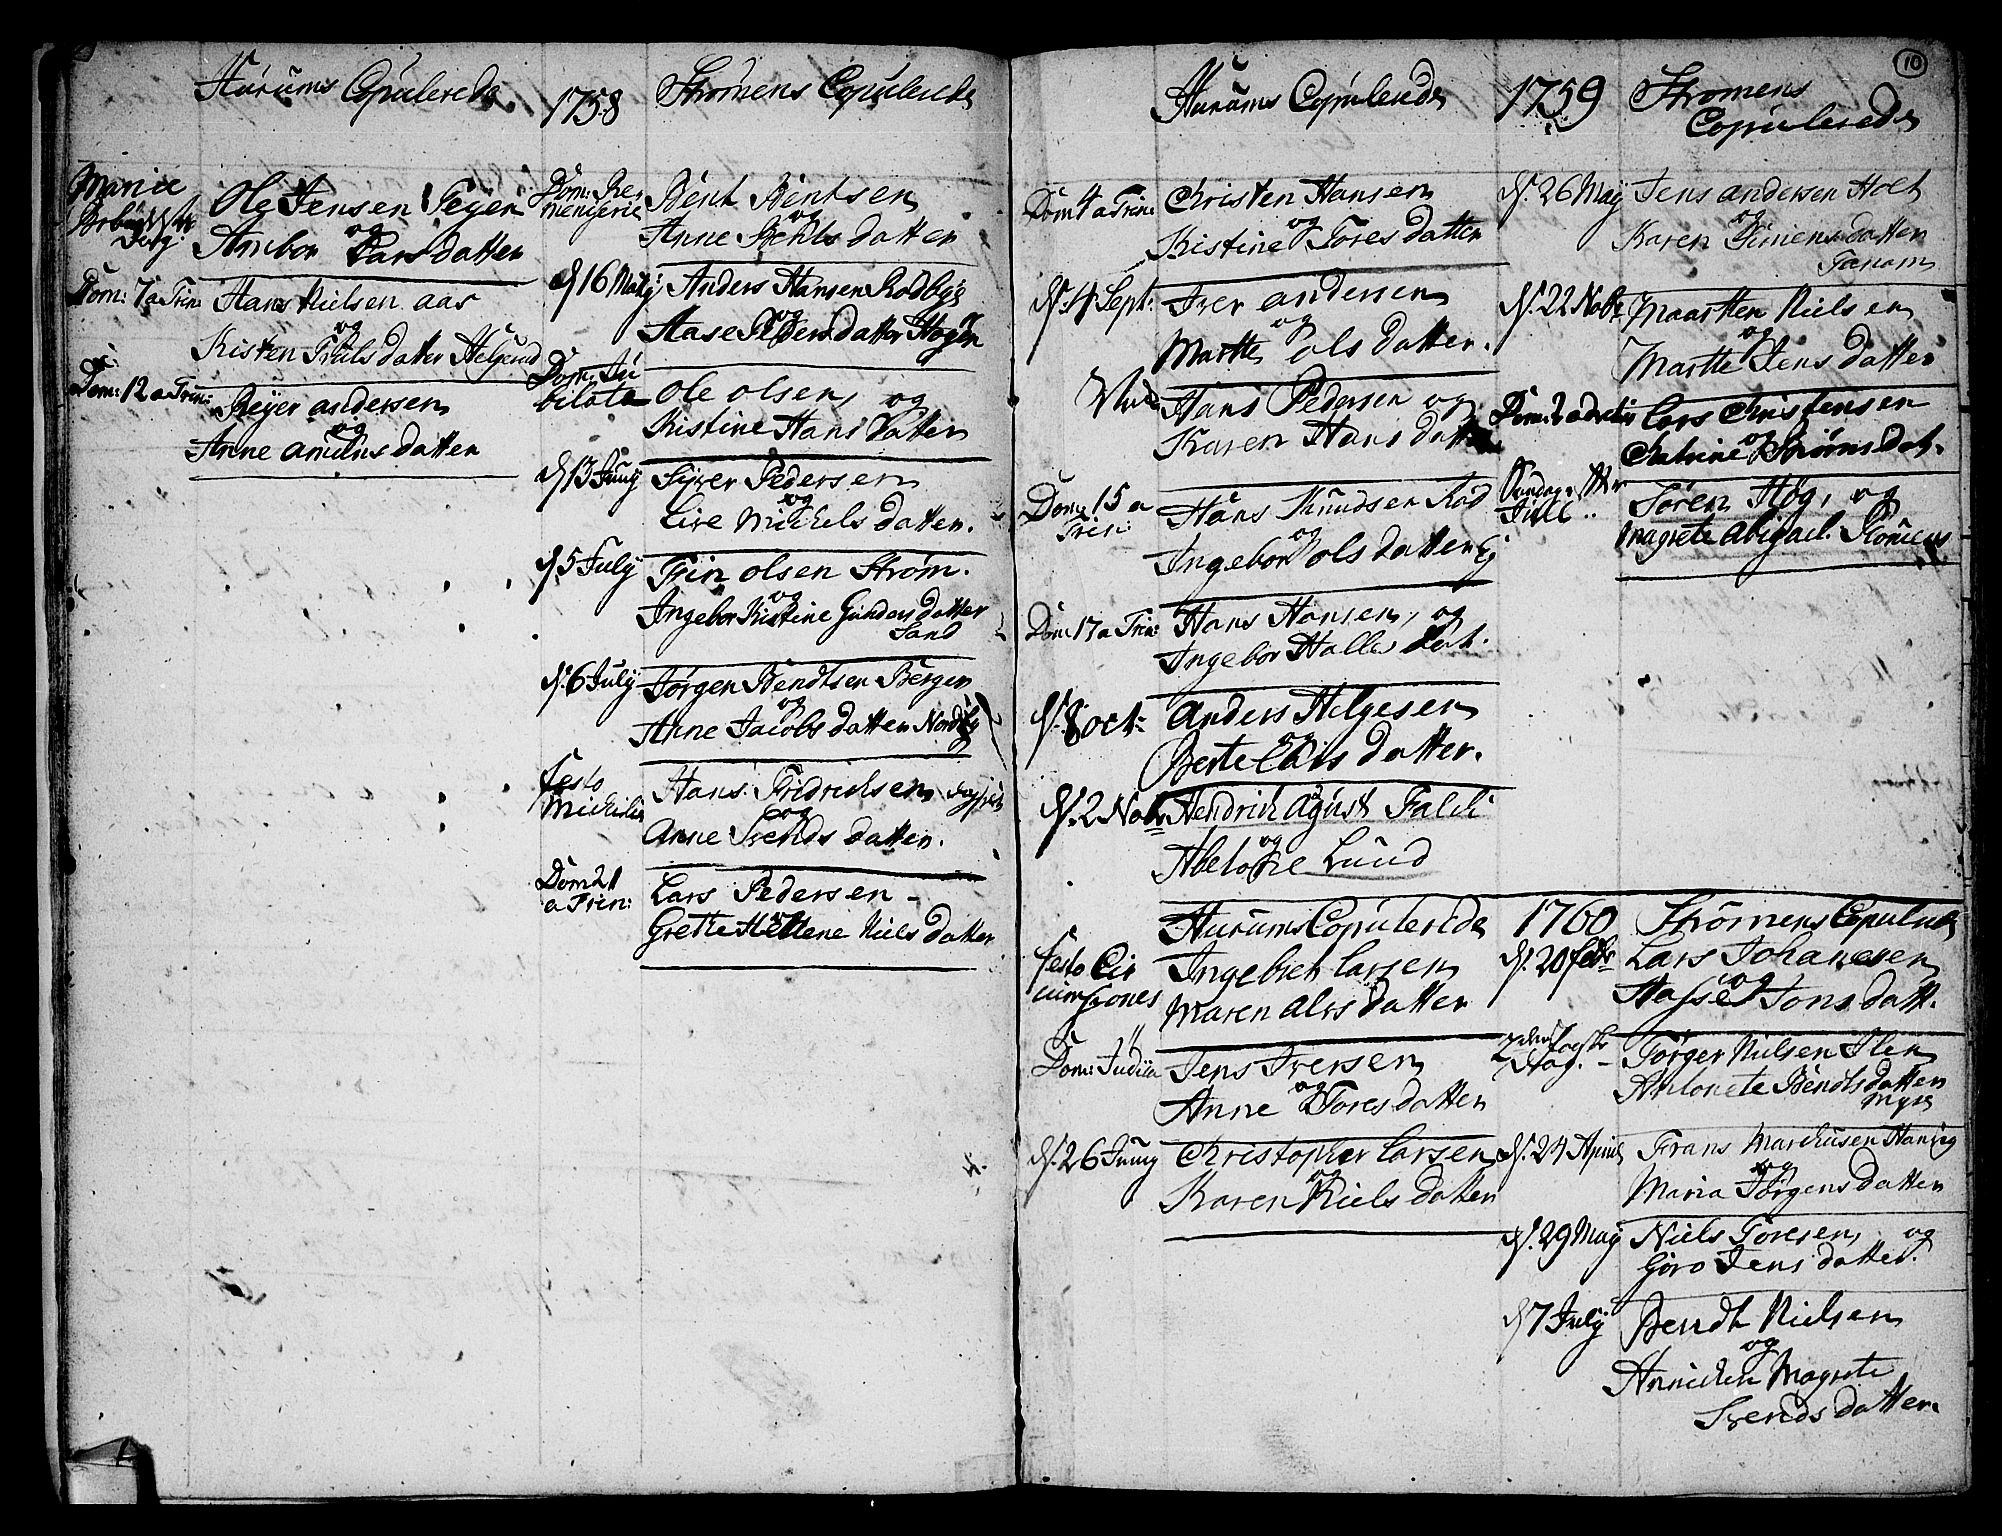 Hurums Copulerede
1758
Strömens Copulerede
Mariæ
Dag.
Ole Jensen
og
Ambor Larsdatter
Dom: 7 a Trin:
Hans Nielsen aas
og
Kisten Truls datter Helgerud
Dom: 12 a Trin:
Reyer andersen
og
Anne amunsdatter
Dom: Re
Bent Bentsen
og
Anne datter
d. 16 Martij
Anders Hansen Rodbye
og
Aase Peders datter Hogen
Dom: Ju
bilate
Ole olsen, og
Kistine Hans datter
d. 13 Junij
Siver Pedersen
og
Live Michels datter.
d. 5 July
Trin olsen Strøm.
og
Ingebor Kistine Gunders datter
Sand
d. 6 July
Jørgen Bendtsen Bergen
og
Anne Jacobs datter Nordby
festo
Michaelis
Hans Fridrichsen
og
Anne Svends datter.
Dom 21
a Trin:
Lars Pedersen
Grethe Hellene Niels datter
10
Hurums Copulerede
1759
Strömens
Copulerede
Dom 4 a Trin:
Christen Hansen
og
Kistine Tores datter
d. 4 Sept:
Iver andersen
og
Marthe ols datter.
Hans Pedersen og
Karen Hans datter
Dom. 15 a
Trin:
Hans Knudsen Rød
og
Ingebor ols datter Ej
Dom 17 a Trin:
Hans Hansen, og
Ingebor Halles dat.
d. 8 oct:
Anders Helgesen
og
Berte Lars datter.
d. 2 Nob:
Hendrich Agust Falch
og
Abelone Lund
d. 26 May
Jens andersen Holt
og
Karen Simens datter
Tanam
d. 22 Nobr
Maartten Nielsen
og
Martte Jens datter
Dom: 2 adventus
Lars Christensen
og
Catrine Strøms dat.
Søndag efter
Juul
Søren Høg, og
Magrete Abigael
Hurums Copulerede
1760
Strömens Copulerede
festo Cir
cumsiones
Ingebret Larsen
Maren alvs datter
Dom: Judica
Jens Iversen
og
Anne Tores datter
d. 26 Juny
Christopher Larsen
og
Karen Niels datter
d. 20 febr
Lars Johanesen
og
Aasse Jons datt.
Jörger Nielsen
Antonete Bendts datter
Myre
d. 24 April
Frans Marchusen
og
Maria Jørgens datter
d. 29 May
Niels Toresen, og
Göro Jens datter.
d. 7 July
Bendt Nielsen
og
Annichen Magrete
Svends datter.